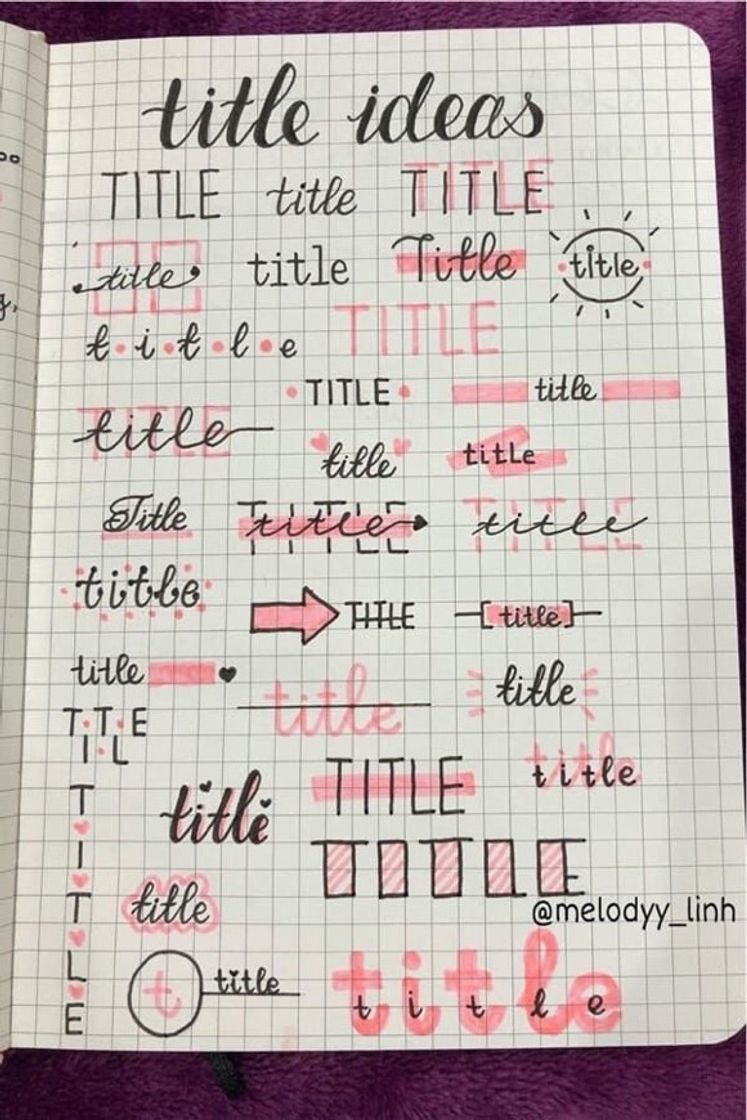 title ideas
TITLE title TITLE
title title Title title
t•i•t•l•e TITLE
• TITLE • title
TITLE title
title title
Title TITLE title TITLE title
title
TITLE -[title]-
title title title
TITLE
TITLE title
title
TITLE
TITLE
@melodyy_linh
title
t title
title
t i t l e